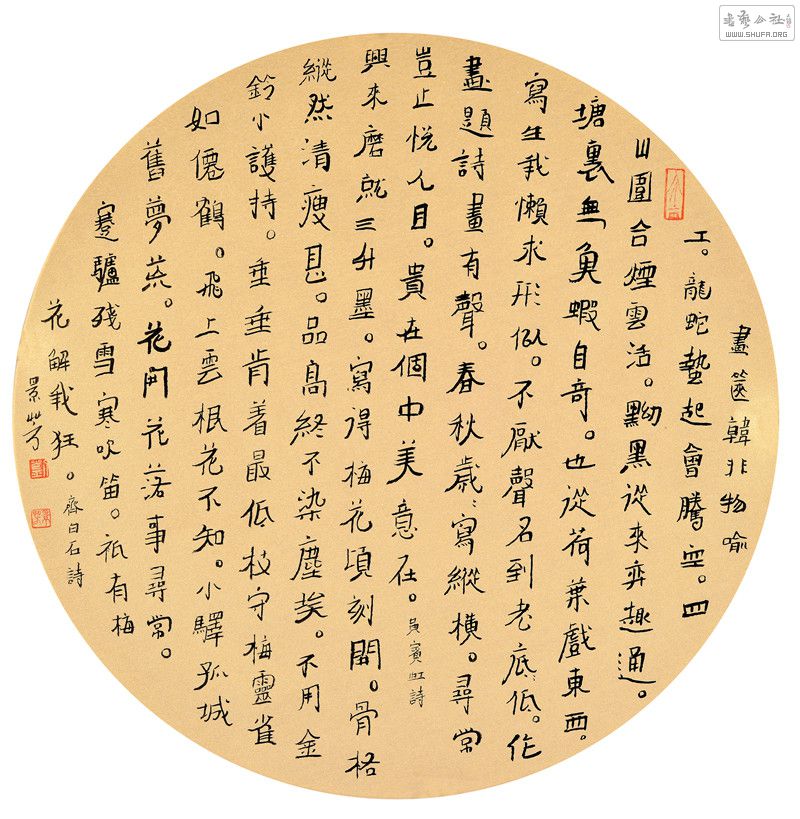 畫筪韓非物喻
工。龍蛇蟄起會騰空。四
山圍合煙雲活。黝黑從來弈趣通。
塘裏無魚蝦自奇。也從荷葉戲東西。
寫生我懶求形似。不厭聲名到老底低。作
畫題詩畫有聲。春秋歲歲寫縱橫。尋常
豈止悅人目。貴在個中美意在。黃賓虹詩
興來磨就三升墨。寫得梅花頃刻開。骨格
縱然清瘦。品高終不染塵埃。不用金
鈴小護持。垂垂肯着最低枝守梅靈雀
如僊鶴。飛上雲根花不知。小驛孤城
舊夢荒。花開花落事尋常。
蹇驢殘雪寒吹笛。祇有梅
花解我狂。齊白石詩
景
書藝公社
WWW.SHUFA.ORG